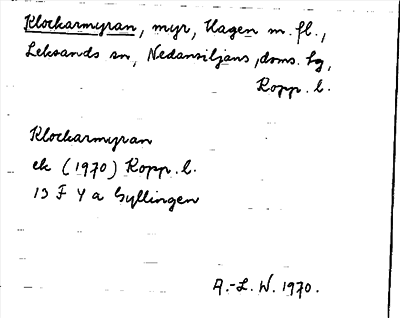 Klockarmyran, myr, Hagen m. fl.,
Leksands sn, Nedansiljans, doms. lg,
Kopp. l.
Klockarmyran
ek (1970) Kopp. l.
13 F 4 a Gyllingen
A.-L. W. 1970.